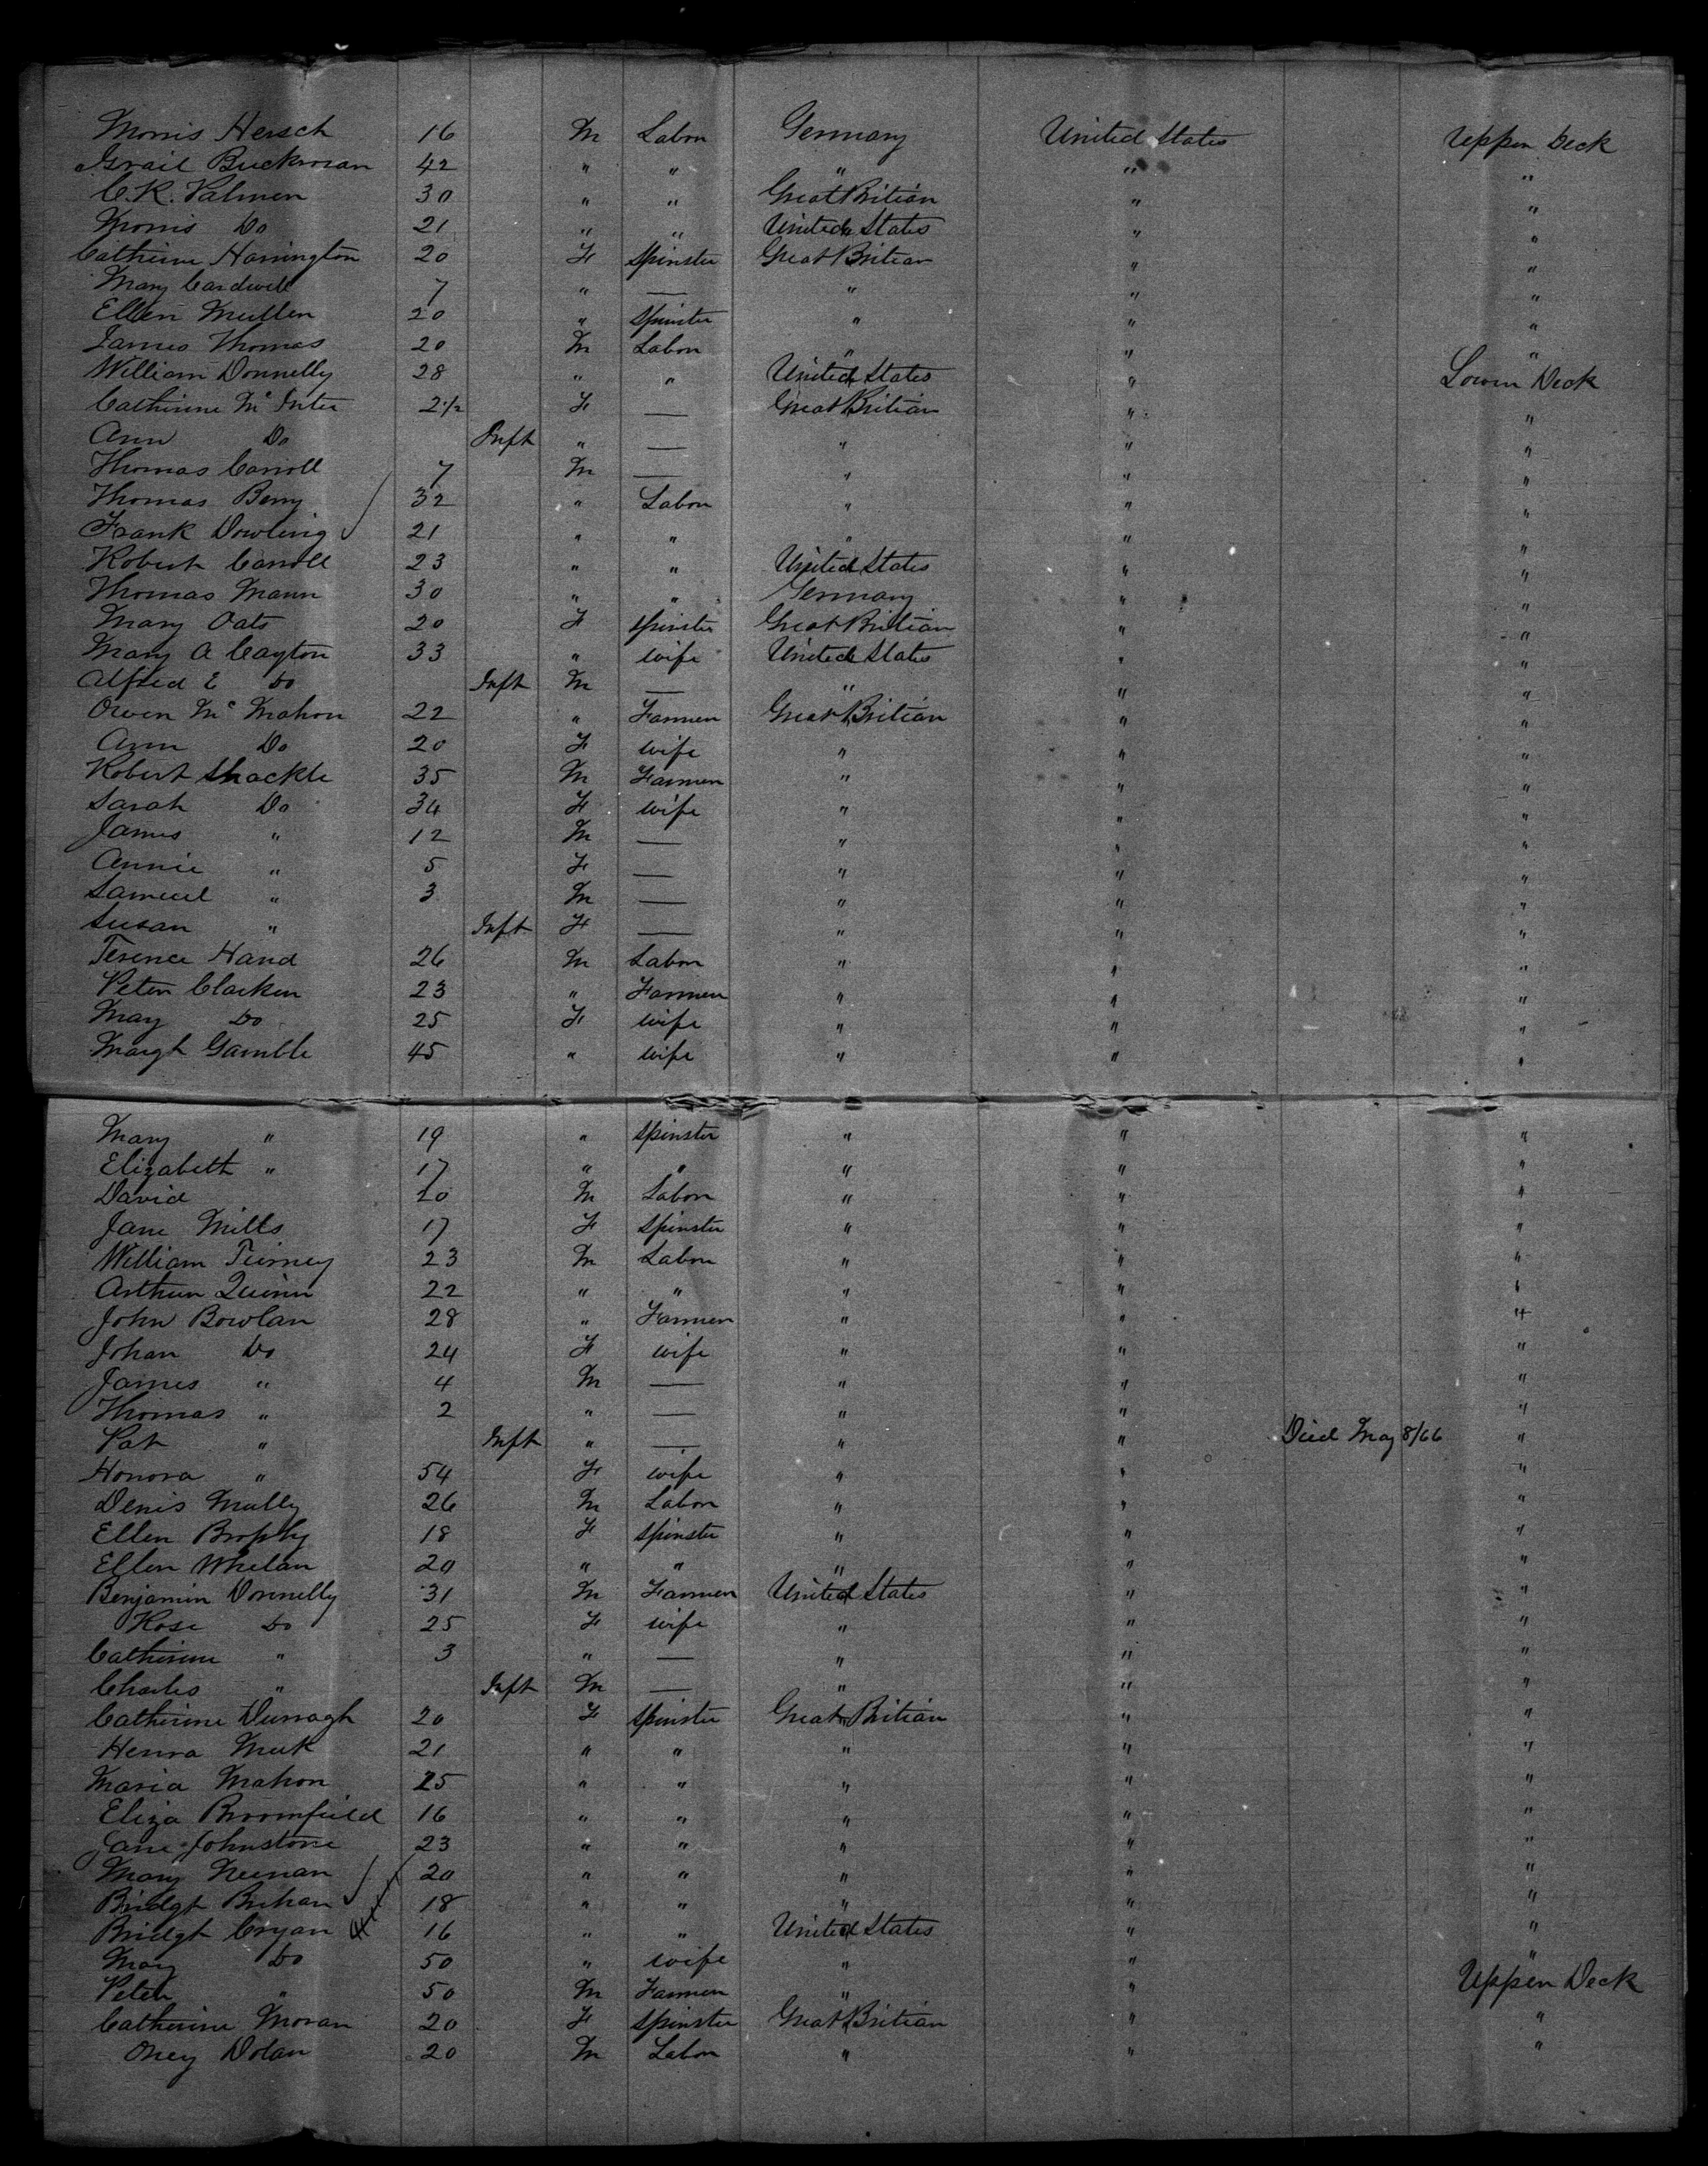 Morris Hersch 16 M Labor Germany United States Upper Deck
Israil Buckman 42 " " " " "
C. K. Palmer 30 " " Great Britian " "
Morris Do 21 " " United States " "
Catherine Harrington 20 F Spinster Great Britian " "
Mary Cardwell 7 " — " " "
Ellen Mullen 20 " Spinster " " "
James Thomas 20 M Labor " " "
William Donnelly 28 " " United States " Lower Deck
Catherine McInter 2½ F — Great Britian " "
Ann Do Inft " — " " "
Thomas Carroll 7 M — " " "
Thomas Berry 32 " Labor " " "
Frank Dowling 21 " " " " "
Robert Carroll 23 " " United States " "
Thomas Mann 30 " " Germany " "
Mary Oats 20 F Spinster Great Britian " "
Mary A Cayton 33 " Wife United States " "
Alfred E Do Inft M — " " "
Owen Mc Mahon 22 " Farmer Great Britian " "
Ann Do 20 F Wife " " "
Robert Shackle 35 M Farmer " " "
Sarah Do 34 F Wife " " "
James " 12 M — " " "
Annie " 5 F — " " "
Samuel " 3 M — " " "
Susan " Inft F — " " "
Terence Hand 26 M Labor " " "
Peter Clarken 23 " Farmer " " "
May Do 25 F Wife " " "
Margt Gamble 45 " Wife " " "
Mary " 19 " Spinster " " "
Elizabeth " 17 " " " " "
David 20 M Labor " " "
Jane Mills 17 F Spinster " " "
William Tierney 23 M Labor " " "
Arthur Quinn 22 " " " " "
John Bowlan 28 " Farmer " " "
Johan Do 24 F Wife " " "
James " 4 M — " " "
Thomas " 2 " — " " "
Pat " Inft " — " " Died May 8/66 "
Honora " 54 F Wife " " "
Denis Mully 26 M Labor " " "
Ellen Brophy 18 F Spinster " " "
Ellen Whelan 20 " " " " "
Benjamin Donnelly 31 M Farmer United States " "
Rose Do 25 F Wife " " "
Catherine " 3 " — " " "
Charles " Inft M — " " "
Catherine Durragh 20 F Spinster Great Britian " "
Henra Meek 21 " " " " "
Maria Mahon 25 " " " " "
Eliza Broomfield 16 " " " " "
Jane Johnstone 23 " " " " "
Mary Neenan 20 " " " " "
Bridgt Brehan 18 " " " " "
Bridgt Cryan 16 " " United States " "
Mary Do 50 " Wife " " "
Peter " 50 M Farmer " " Upper Deck
Catherine Moran 20 F Spinster Great Britian " "
Oney Dolan 20 M Labor " " "